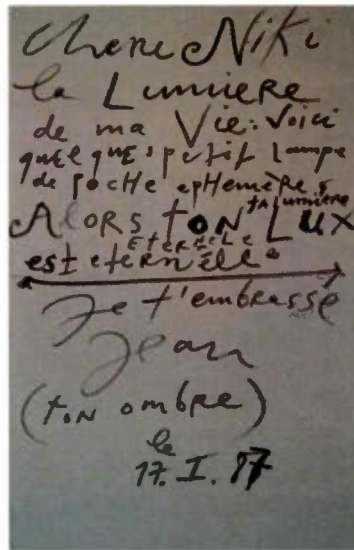 chere Niki
la LumieRe
de ma Vie: Voici
quelque's petit lampe
de pocHe epHemère,s
ta lumiere
Alors ton Lux
EterNeLe
est eternelle
Je t'embrasse
Jean
(ton ombre)
le
17. I. 87